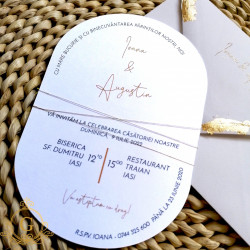 CU MARE BUCURIE ȘI CU BINECUVÂNTAREA PĂRINȚILOR NOȘTRI, NOI,
Ioana
&
Augustin
VĂ INVITĂM LA CELEBRAREA CĂSĂTORIEI NOASTRE
DUMINICĂ, IULIE 2022
BISERICA
SF. DUMITRU
IAȘI
12
15⁰⁰
RESTAURANT
TRAIAN
IAȘI
Vă așteptăm cu drag!
R.S.V.P. IOANA - 0744 725 600 PÂNĂ LA 23 IUNIE 2022